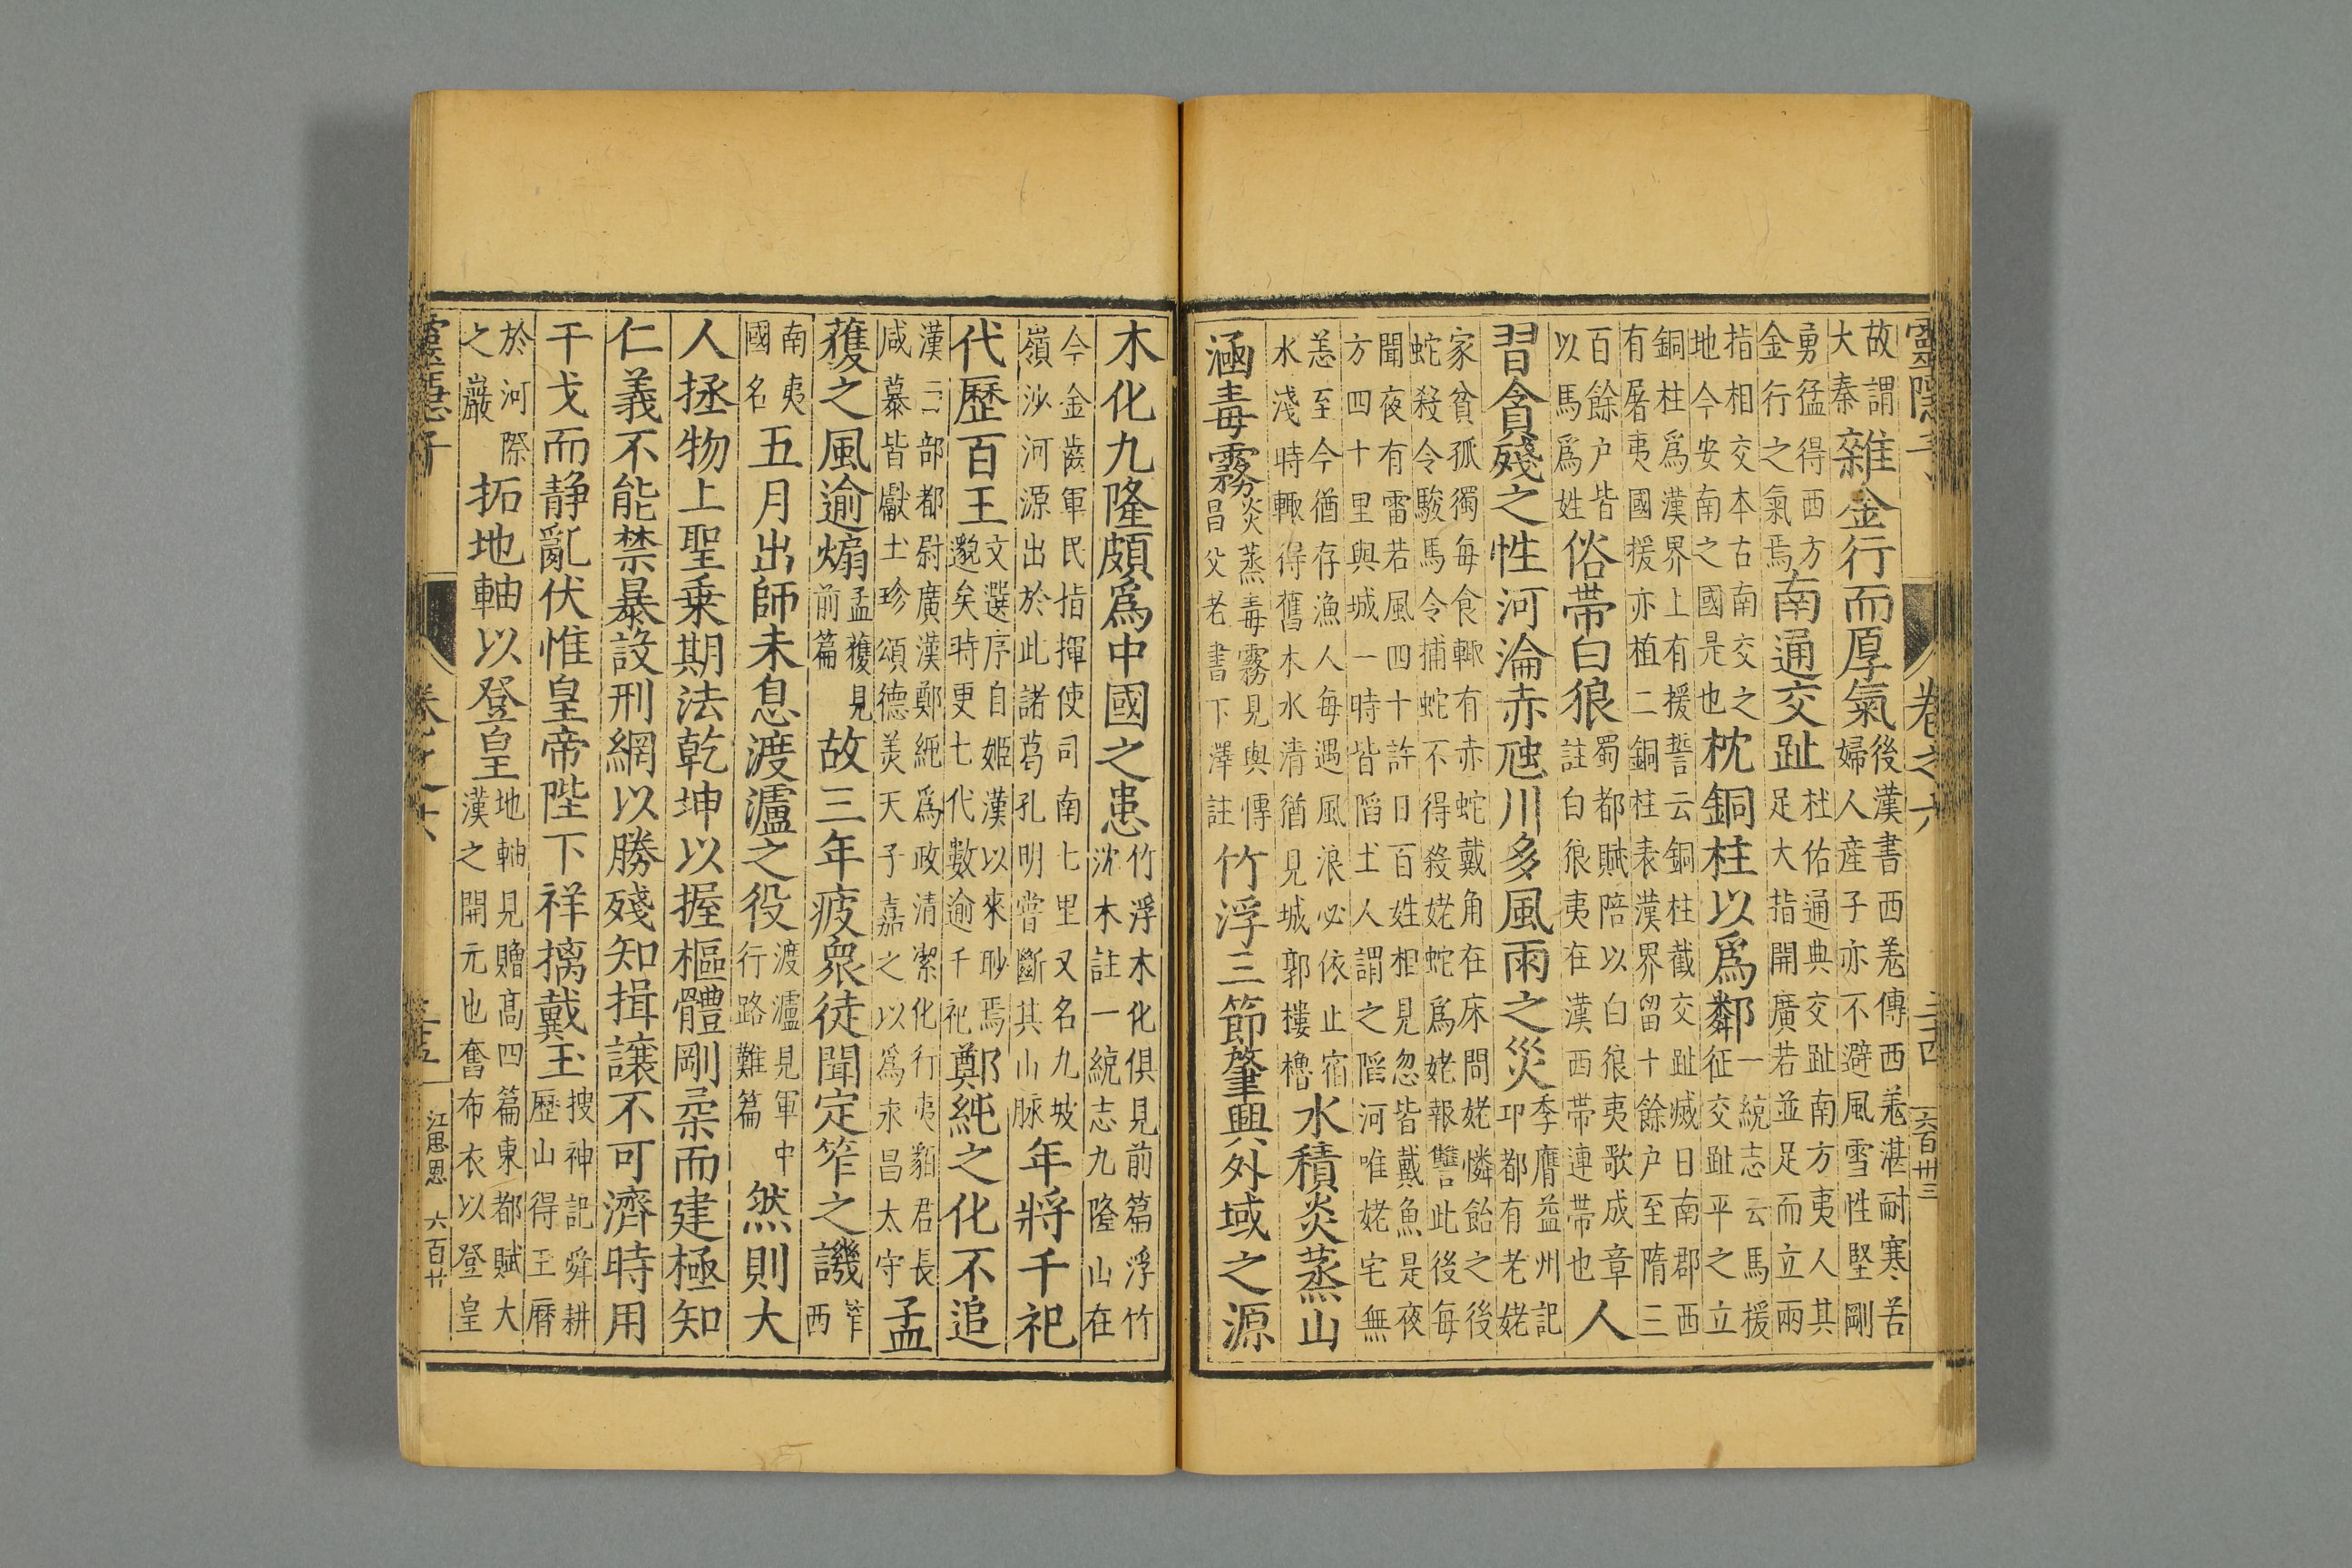 靈隱子 卷之六 三十四 六百卅三
故謂大秦雜金行而厚氣後漢書西羌傳西羌湛耐寒苦婦人産子亦不避風雪性堅剛
勇猛得西方金行之氣焉南通交趾杜佑通典交趾南方夷人其足大指開廣若並足而立兩
指相交本古南交之地今安南之國是也枕銅柱以爲鄰一統志云馬援征交趾平之立
銅柱爲漢界上有援誓云銅柱截交趾滅日南郡西有屠夷國援亦植二銅柱表漢界留十餘户至隋三
百餘户皆以馬爲姓俗帶白狼蜀都賦陪以白狼夷歌成章註白狼夷在漢西帶連帶也人
習貪殘之性河淪赤虺川多風雨之災季膺益州記卭都有老姥
家貧孤獨每食輙有赤蛇戴角在床問姥憐飴之後蛇殺令駿馬令捕蛇不得殺姥蛇爲姥報讐此後每
聞夜有雷若風四十許日百姓相見忽皆戴魚是夜方四十里與城一時皆陷土人謂之陷河唯姥宅無
恙至今猶存漁人每遇風浪必依止宿水淺時輙得舊木水清猶見城郭樓櫓水積炎蒸山
涵毒霧炎蒸毒霧見輿傳昌父老書下澤註竹浮三節肇興外域之源
木化九隆頗爲中國之患竹浮木化俱見前篇浮竹沈木註一統志九隆山在
今金齒軍民指揮使司南七里又名九坡嶺沙河源出於此諸葛孔明嘗斷其山脉年將千祀
代歷百王文選序自姬漢以來眇焉邈矣時更七代數逾千祀鄭純之化不追
漢二部都尉廣漢鄭純爲政清潔化行夷貊君長咸慕皆獻土珍頌德美天子嘉之以爲永昌太守孟
蒦之風逾煽孟蒦見前篇故三年疲衆徒聞定筰之譏筰西
南夷國名五月出師未息渡瀘之役渡瀘見軍中行路難篇然則大
人拯物上聖乗期法乾坤以握樞體剛柔而建極知
仁義不能禁暴設刑網以勝殘知揖讓不可濟時用
干戈而静亂伏惟皇帝陛下祥摛戴玉搜神記舜耕歷山得玉曆
於河際之巖拓地軸以登皇地軸見贈髙四篇東都賦大漢之開元也奮布衣以登皇
靈隱子 卷之六 三十五 江思恩 六百廿